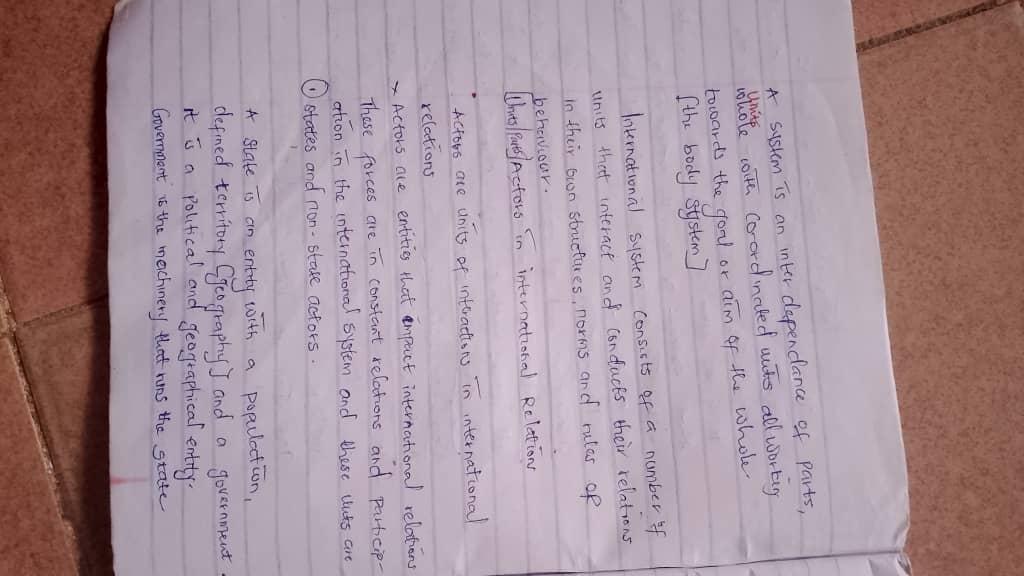 A system is an inter dependance of parts,
units
whole with coordinated units all working
towards the goal or aim of the whole
[the body system]
International system consists of a number of
units that interact and conducts their relations
in their own structures, norms and rules of
behaviour.
[Units/Parts/Actors in international Relation
Actors are units of interactions in international
relations
* Actors are entities that impact international relations
These forces are in constant relations and particip-
ation in the international system and these units are
① states and non-state actors.
A state is an entity with a population,
defined territory [geography] and a government.
it is a political and geographical entity.
Government is the machinery that runs the state